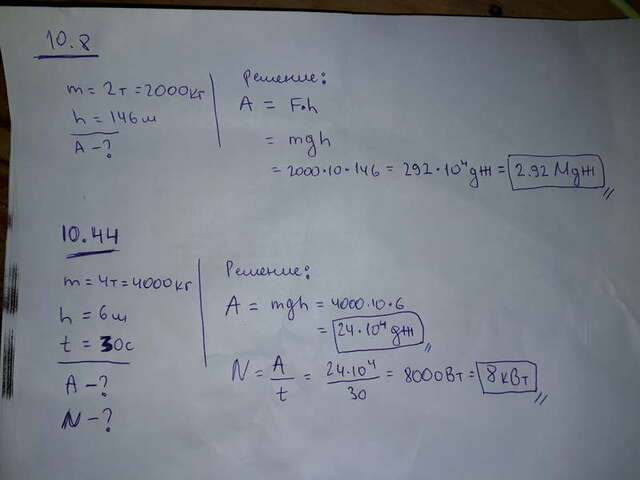 10.8
m = 2т = 2000кг
h = 146м
A - ?
Решение:
A = F·h
= mgh
= 2000·10·146 = 292·10⁴дж = 2.92 Мдж
10.44
m = 4т = 4000кг
h = 6м
t = 30с
A - ?
N - ?
Решение:
A = mgh = 4000·10·6
= 24·10⁴ дж
N = A/t = 24·10⁴/30 = 8000Вт = 8 кВт